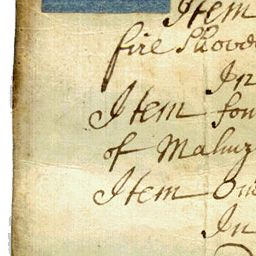 Item
fire Shove
In
Item fou
of Malmy
Item On
In